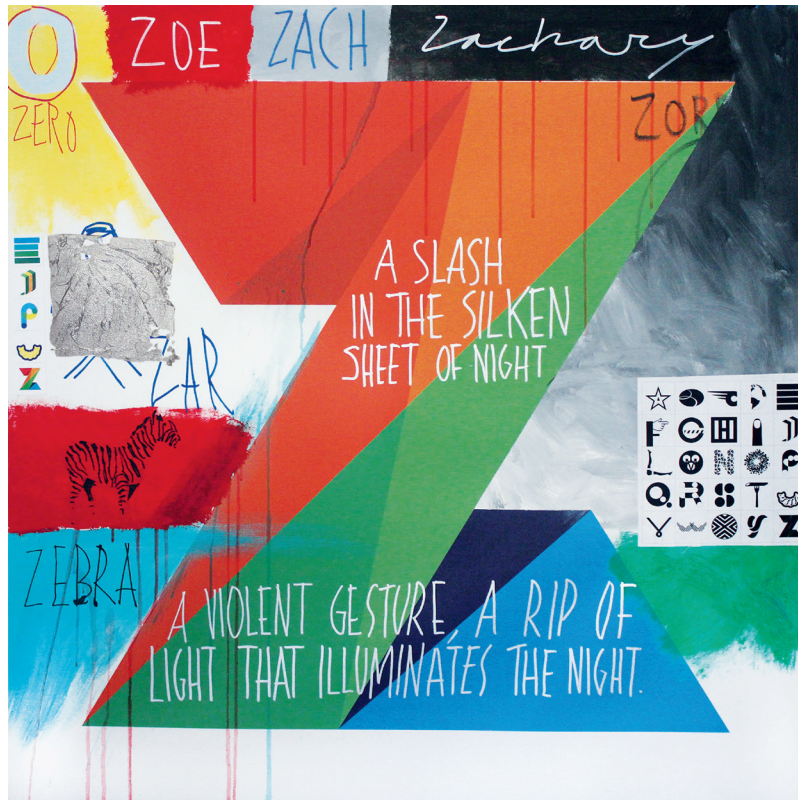 O
ZOE
ZACH
Zachary
ZERO
ZORR
A SLASH
IN THE SILKEN
SHEET OF NIGHT
ZAR
ZEBRA
A VIOLENT GESTURE, A RIP OF
LIGHT THAT ILLUMINATES THE NIGHT.